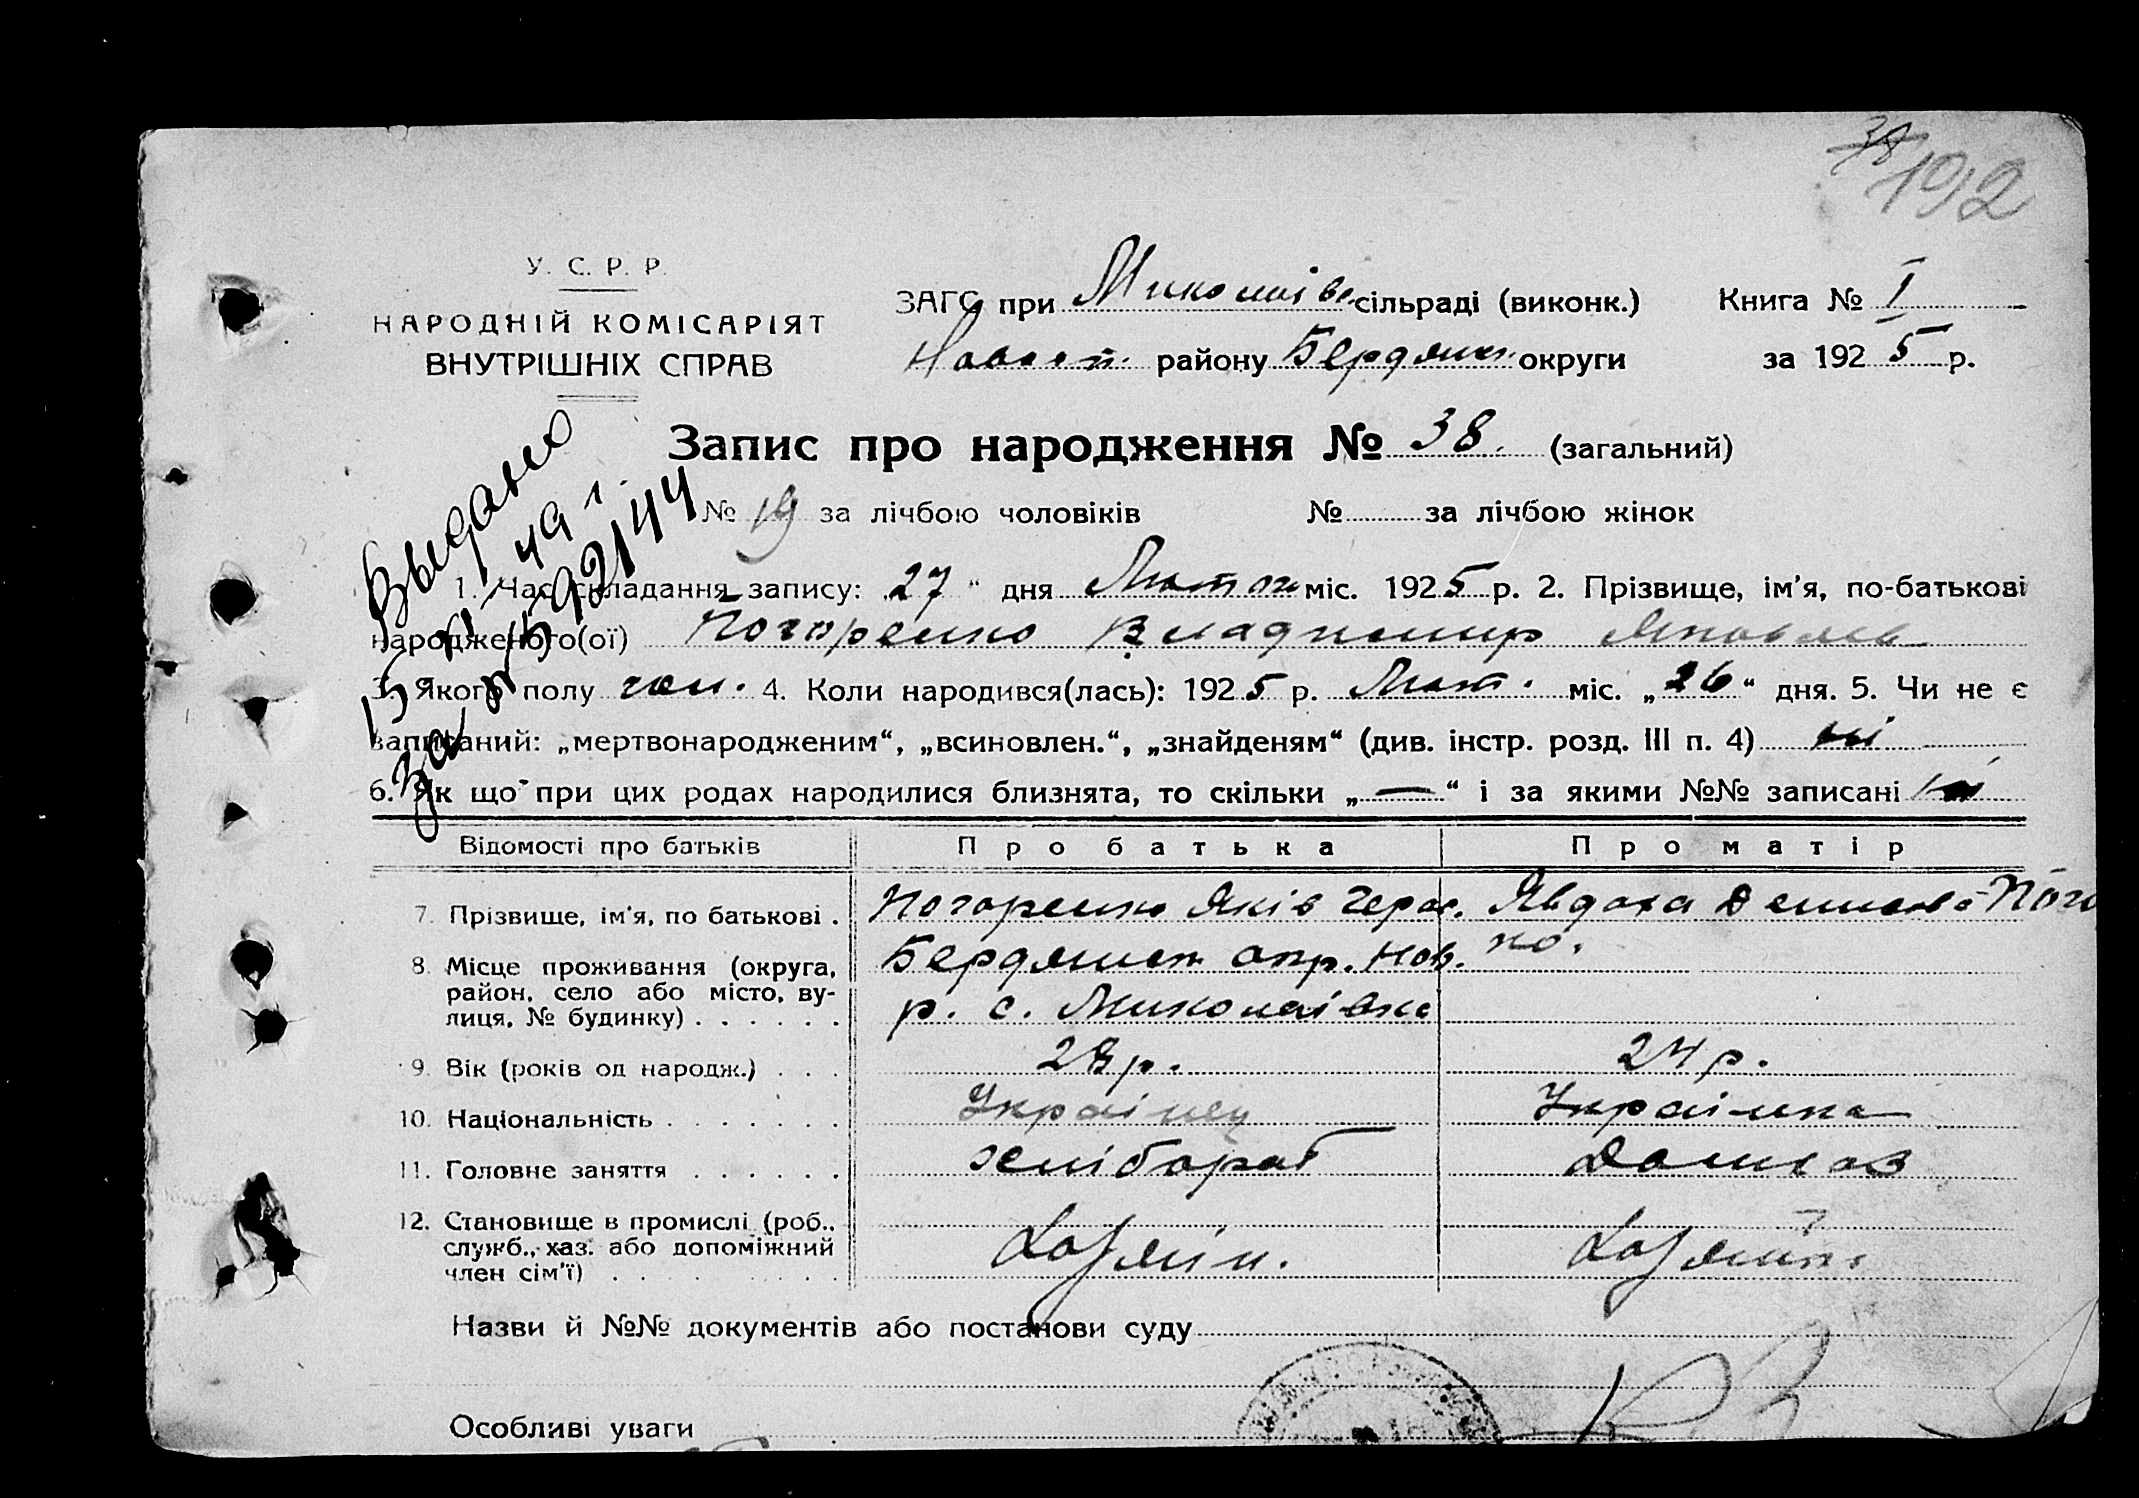 38 192
У. С. Р. Р.
НАРОДНІЙ КОМІСАРІЯТ
ВНУТРІШНІХ СПРАВ
ЗАГС при Миколаївс. сільраді (виконк.) Книга № I
району Бердянс. округи за 1925 р.
Запис про народження № 38. (загальний)
№ 19 за лічбою чоловіків № за лічбою жінок
Выдано
1. Час складання запису: 27 " дня Лютого міс. 1925 р. 2. Прізвище, ім'я, по-батькові
народженого(ої) Погоренко Владимир Яковлев
3. Якого полу чол. 4. Коли народився(лась): 1925 р. Лют. міс. „26“ дня. 5. Чи не є
записаний: „мертвонародженим“, „всиновлен.“, „знайденям“ (див. інстр. розд. III п. 4) ні
6. Як що при цих родах народилися близнята, то скільки „—“ і за якими №№ записані ні
Відомості про батьків Про батька Про матір
7. Прізвище, ім'я, по батькові . Погоренко Яків Герас. Явдоха Пого
8. Місце проживання (округа, район, село або місто, вулиця, № будинку) . . . . . . Бердянськ окр. Нов. р. с. Миколаївка
9. Вік (років од народж.) . . . 28 р. 24 р.
10. Національність . . . . . . . Українец Українка
11. Головне заняття . . . . . . хлібороб Домогоз
12. Становище в промислі (роб., служб., хаз. або допоміжний член сім'ї) . . . . . . . . .
Назви й №№ документів або постанови суду
Особливі уваги